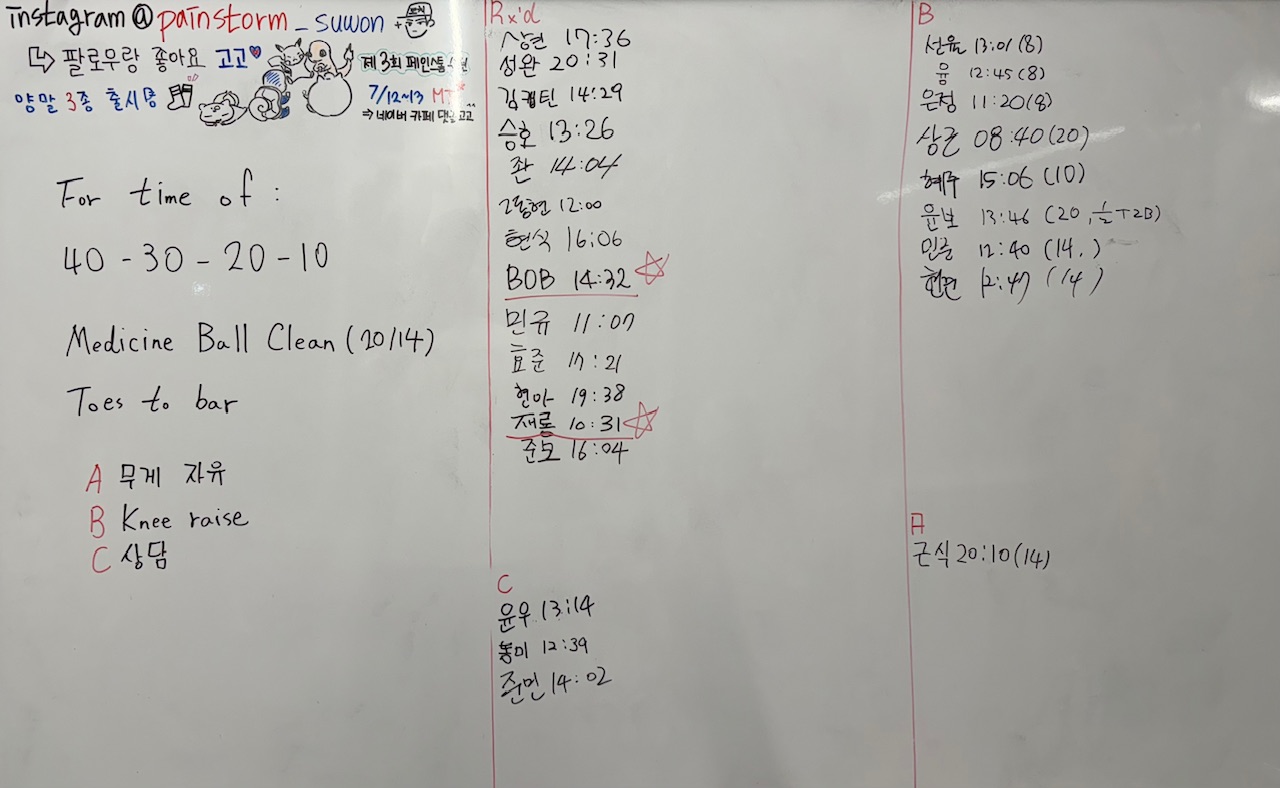 instagram@painstorm_suwon
↳ 팔로우랑 좋아요 고고♥
양말 3종 출시
제3회 페인스톰 수원
7/12~13 MT
⇒ 네이버 카페 댓글 고고^^
For time of :
40 - 30 - 20 - 10
Medicine Ball Clean (20/14)
Toes to bar
A 무게 자유
B Knee raise
C 상담
Rx'd
상현 17:36
성완 20:31
김캡틴 14:29
승호 13:26
좐 14:04
고동현 12:00
현식 16:06
BOB 14:32 ☆
민규 11:07
효준 17:21
현아 19:38
재롱 10:31 ☆
준모 16:04
C
윤우 13:14
동미 12:39
준민 14:02
B
선율 13:01 (8)
윰 12:45 (8)
은정 11:20 (8)
상근 08:40 (20)
혜주 15:06 (10)
윤보 13:46 (20, ½ T2B)
민글 12:40 (14, )
12:47 (14)
A
근식 20:10 (14)